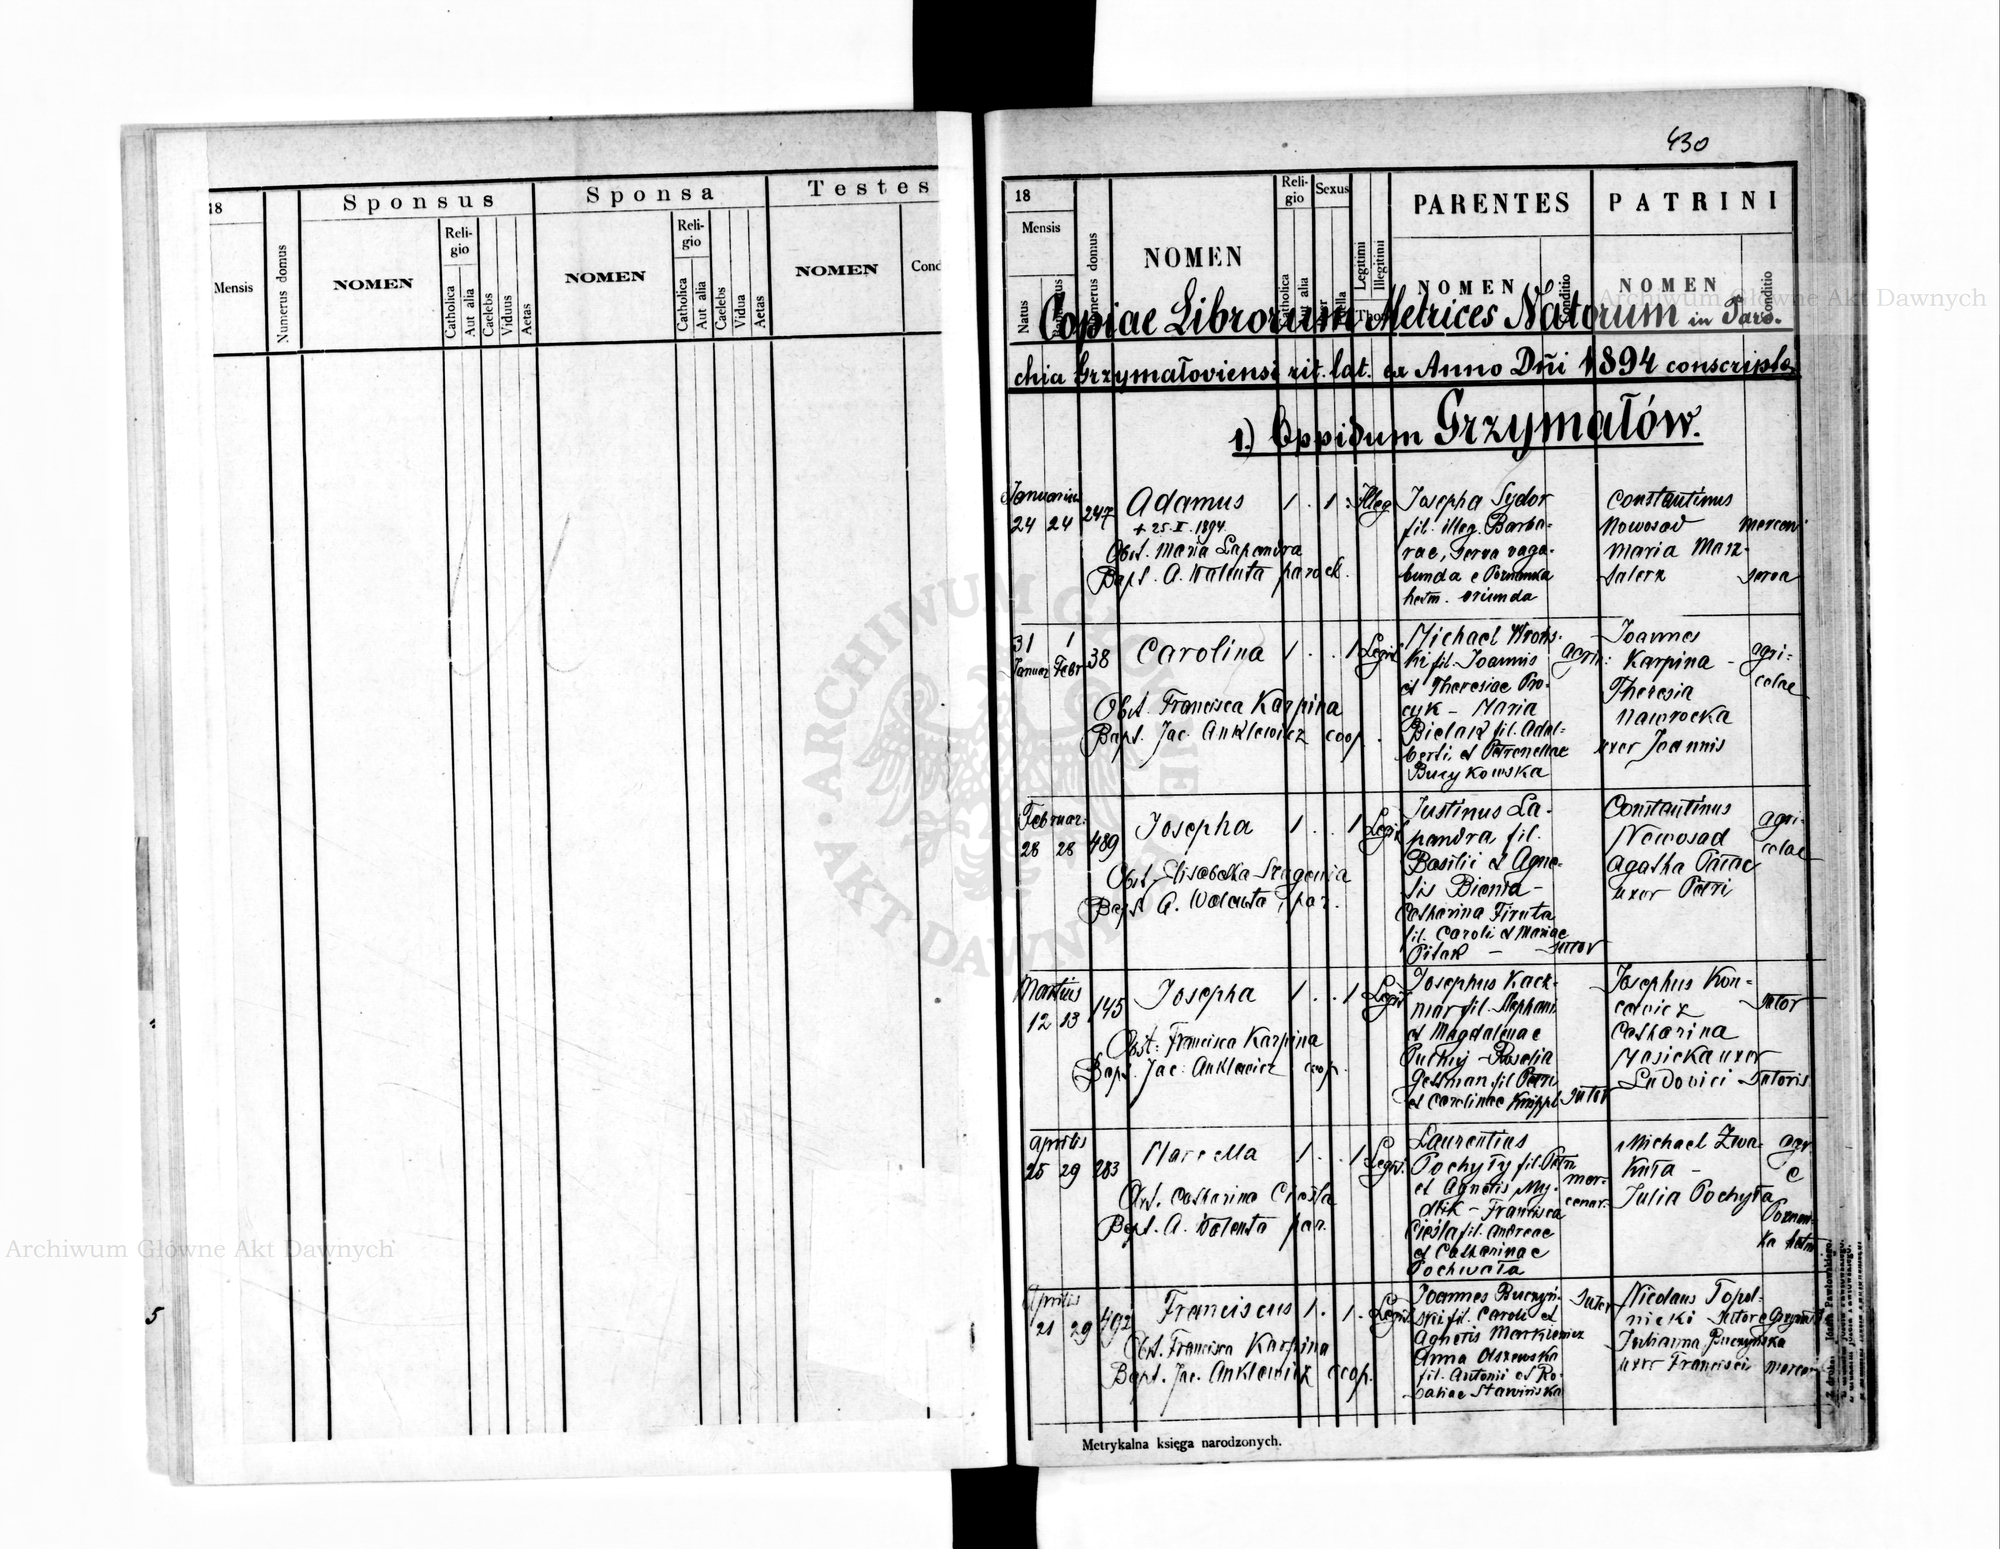 430
18
Sponsus
Sponsa
Testes
Mensis
Numerus domus
NOMEN
Reli-
gio
Catholica
Aut alia
Caelebs
Viduus
Aetas
NOMEN
Reli-
gio
Catholica
Aut alia
Caelebs
Vidua
Aetas
NOMEN
Cond
5
18
Mensis
Natus
Numerus domus
NOMEN
Reli-
gio
Catholica
Aut alia
Sexus
Legitimi
Illegitimi
Thori
PARENTES
NOMEN
Conditio
PATRINI
NOMEN
Conditio
Copiae Librorum Metrices Natorum in Paro-
chia Grzymałoviensi rit. lat. ex Anno Dñi 1894 conscriptae
1.) Oppidum Grzymałów.
Januarius
24 24
247
Adamus
+ 25. I. 1894.
Obst. Maria Lapandra
Bapt. A. Walenta paroch.
1 . 1 . Illeg
Josepha Sydor
fil. illeg. Barba-
rae, serva vaga-
bunda e Poznanka
hetm. oriunda
Constantinus
Nowosad mercen:
Maria Marz-
salerz serva
31 1
Januar Febr
38
Carolina
Obst. Francisca Karpina
Bapt. Jac. Anklewicz coop.
1 . . 1 Legit
Michael Wrons-
ki fil. Joannis agric:
et Theresiae Pro-
cyk – Maria
Bielak fil. Adal-
berti et Petronellae
Bucykowska
Joannes
Karpina – agri-
Theresia colae
Nawrocka
uxor Joannis
Februar:
28 28
489
Josepha
Obst. Elisabetha Szagonia
Bapt. A. Walenta, par.
1 . . 1 Legit
Justinus La-
pandra fil.
Basilii et Agne-
tis Bienia –
Catharina Firuta
fil. Caroli et Mariae
Pitak – sutor
Constantinus
Nowosad agri-
Agatha colae
uxor Petri
Martius
12 13
145
Josepha
Obst: Francisca Karpina
Bapt. Jac: Anklewicz coop.
1 . . 1 Legit
Josephus Kacz-
mar fil. Stephani
et Magdalenae
Rosalia
Getman fil Petri
et Carolinae Knippl sutor
Josephus Kon-
cewicz sutor
Catharina
Mosicka uxor
Ludovici sutoris
Aprilis
25 29
283
Marcella
Obst. Catharina Cieśla
Bapt. A. Walenta par.
1 . . 1 Legit.
Laurentius
Pochyły fil. Petri
et Agnetis My- mer-
dlik – Francisca cenar.
Cieśla fil. Andreae
et Catharinae
Pochwała
Michael Żwa- agr
kuła – e
Julia Pochyła
Poznan-
ka hetm
Aprilis
21 29
492
Franciscus
Obst. Francisca Karpina
Bapt. Jac. Anklewicz coop.
1 . 1 . Legit.
Joannes Buczyń- sutor
ski fil. Caroli et
Agnetis Markiewicz
Anna Olszewska
fil. Antonii et Ro-
saliae Stawińska
Nicolaus Topol-
nicki sutor e Grzymał
Julianna Buczyńska
uxor Francisci mercen
Metrykalna księga narodzonych.
Archiwum Główne Akt Dawnych
Archiwum Główne Akt Dawnych
ARCHIWUM GŁÓWNE AKT DAWNYCH